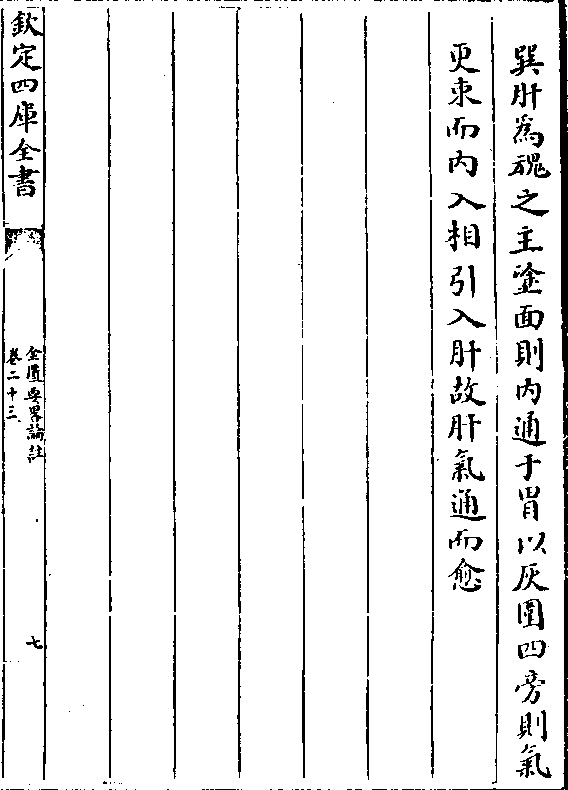 巽肝為魂之主塗面則内通于胃以灰圍四旁則氣
更束而内入相引入肝故肝氣通而愈
欽定四庫全書
金匱要畧論註
卷二十三
七